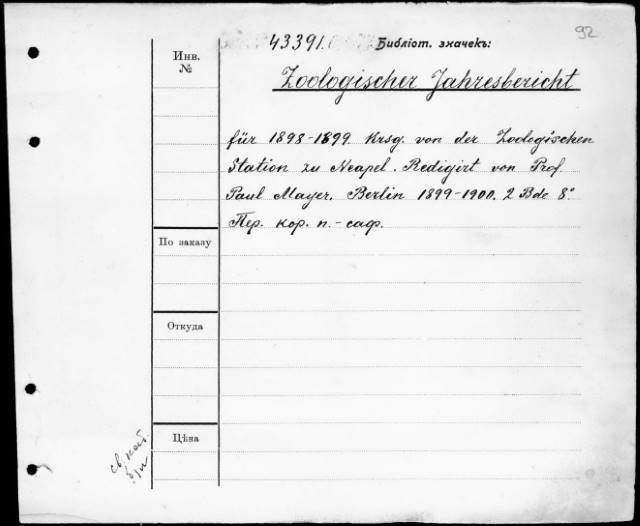 92
43391. Библіот. значекъ:
Инв. №
Zoologischer Jahresbericht
für 1898-1899. Hrsg. von der Zoologischen
Station zu Neapel. Redigirt von Prof.
Paul Mayer. Berlin 1899-1900. 2 Bde 8°
Пер. кор. п.-саф.
По заказу
Откуда
Цѣна
св. каб.